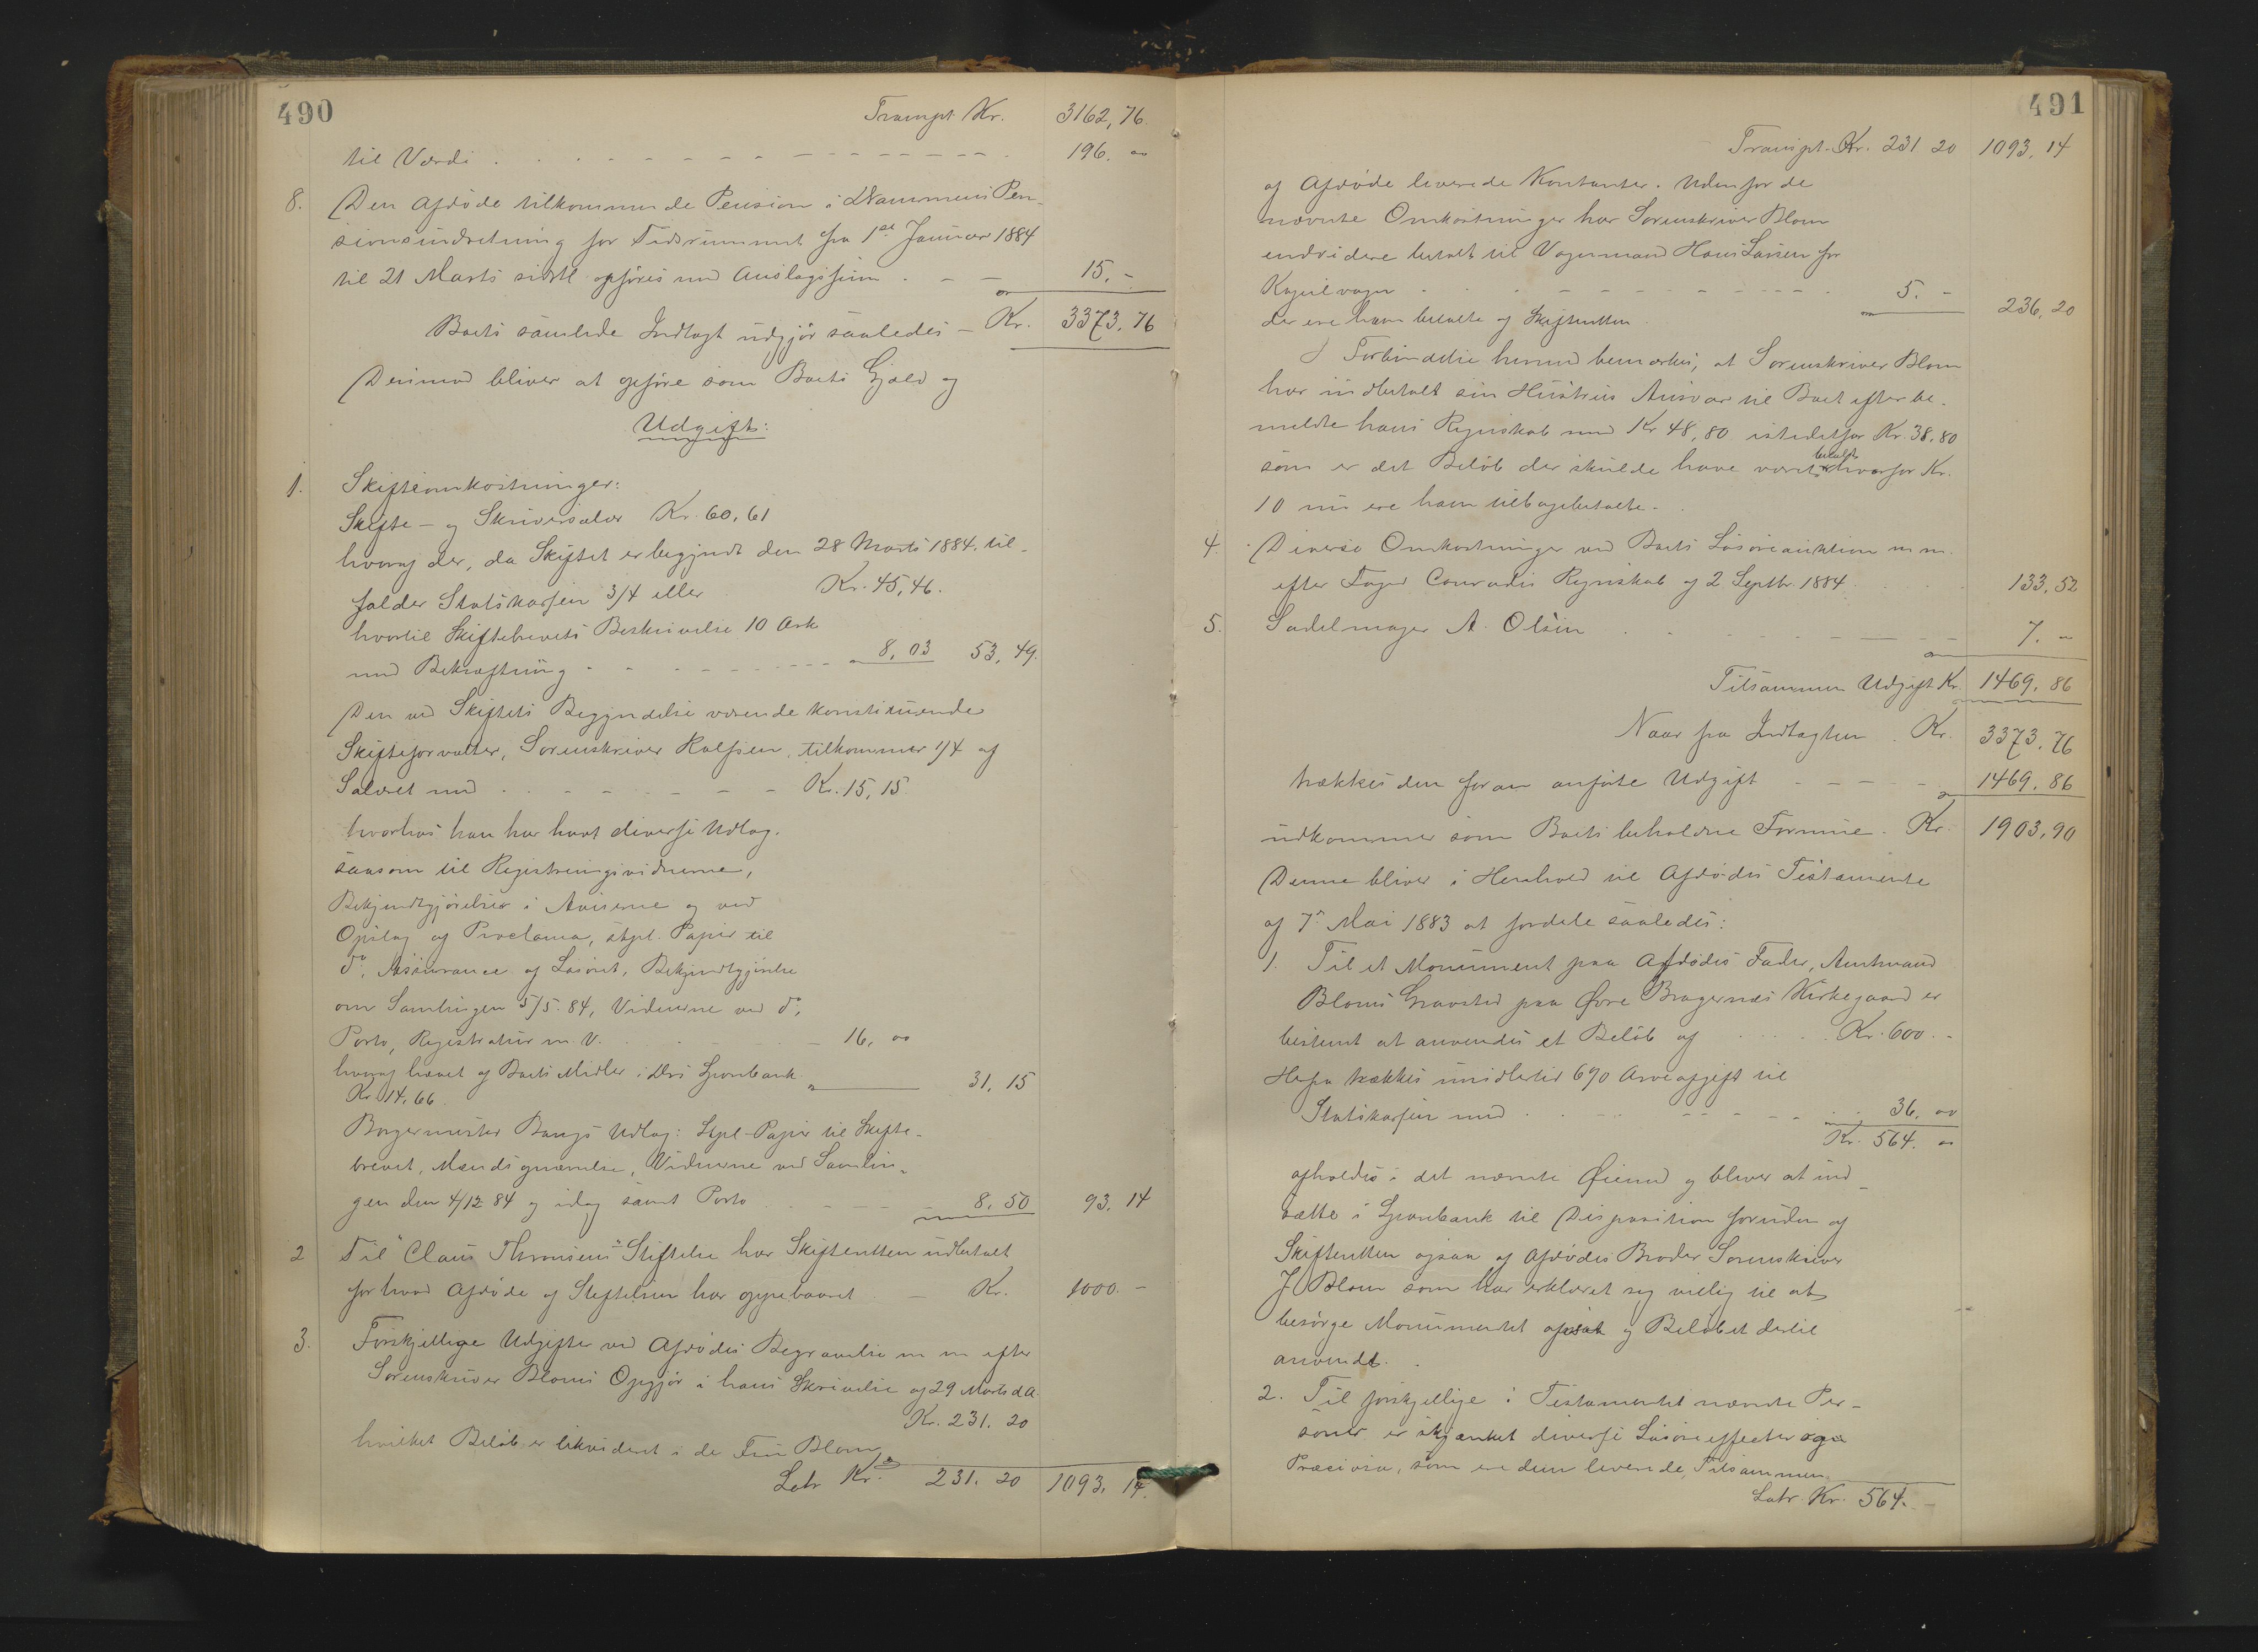 490
Transpt Kr. 3162,76.
til Værdi . . . . . 196. 00
8. Den Afdøde tilkommende Pension i Drammens Pen-
sionsindretning for Tidsrummet fra 1ste Januar 1884
til 21 Marts sidstl. opføres med Anslagssum . - - 15. -
Boets samlede Indtægt udgjør saaledes - Kr. 3373.76
Derimod bliver at opføre som Boets Gjæld og
Udgift:
1. Skifteomkostninger:
Skifte- og Skriversalær Kr. 60,61
hvoraf der, da Skiftet er begyndt den 28 Marts 1884, til-
falder Statskassen 3/4 eller Kr. 45,46.
hvortil Skiftebrevets Beskrivelse 10 Ark
med Bekræftning - - - - 8,03 53,49.
Den ved Skiftets Begyndelse værende konstituerede
Skifteforvalter, Sorenskriver Rolfsen, tilkommer 1/4 af
Salæret med . . - - - - Kr. 15,15
hvorhos han har havt diverse Udlæg.
saasom til Registreringsvidnerne,
Bekjendtgjørelser i Aviserne og ved
Opslag af Proclama, stpl. Papir til
do, Assurance af Løsøret, Bekjendtgjørelse
om Samlingen 5/5. 84, Vidnerne ved do,
Porto, Registratur m. V. . . - - 16, 00
hvoraf hævet af Boets Midler i Drs Sparebank
Kr 14,66. 31,15
Borgermester Bangs Udlæg: Stpl. Papir til Skifte-
brevet, Mændsopnævnelse, Vidnerne ved Samlin-
gen den 4/12 84 og idag samt Porto . - - - 8,50 93,14
2 Til "Claus Thronsens" Stiftelse har Skifteretten udbetalt
for hvad Afdøde af Stiftelsen har oppebaaret . - Kr. 1000. -
3. Forskjellige Udgifter ved Afdødes Begravelse m m efter
Sorenskriver Bloms Opgjør i hans Skrivelse af 29 Marts d.A.
Kr. 231. 20
hvilket Beløb er likvideret i de Frü Blom
Latr Kr. 231. 20 1093. 14.
491
Transpt. Kr. 231 20 1093. 14
af Afdøde leverede Kontanter. Udenfor de
nævnte Omkostninger har Sorenskriver Blom
endvidere betalt til Vognmand Hans Larsen for
Kapelvogn . . . - - - - 5. -
der ere ham betalte af Skifteretten 236,20
I Forbindelse hermed bemærkes, at Sorenskriver Blom
har indbetalt sin Hustrus Ansvar til Boet efter be-
meldte hans Regnskab med Kr 48,80 istedetfor Kr. 38,80
som er det Beløb der skulde have været betalt hvorfor Kr.
10 nu ere ham tilbagebetalte.
4. Diverse Omkostninger ved Boets Løsøreauktion m m.
efter Foged Conradis Regnskab af 2 Septbr. 1884 . . . 133,52
5. Sadelmager A. Olsen . . . - - - 7. -
Tilsammen Udgift Kr. 1469. 86
Naar fra Indtægten . Kr. 3373. 76
trækkes den foran anførte Udgift - - - - 1469. 86
udkommer som Boets beholdne Formue. Kr. 1903,90
Denne bliver i Henhold til Afdødes Testamente
af 7de Mai 1883 at fordele saaledes:
1. Til et Monument paa Afdødes Fader, Amtmand
Bloms Gravsted paa Øvre Bragernæs Kirkegaard er
bestemt at anvendes et Beløb af . . . Kr. 600. -
Herfra trækkes imidlertid 6% Arveafgift til
Statskassen med . . . - - - 36. 00
Kr. 564. 00
afholdes i det nævnte Øiemed og bliver at ind-
sætte i Sparebank til Disposition foruden af
Skifteretten ogsaa af Afdødes Broder Sorenskriver
J Blom som har erklæret sig villig til at
besørge Monumentet opsat og Beløbet dertil
anvendt.
2. Til forskjellige i Testamentet nævnte Per-
soner er skjænket diverse Løsøreeffecter og
Præciosa, som ere dem leverede, Tilsammen
Latr. Kr. 564. -